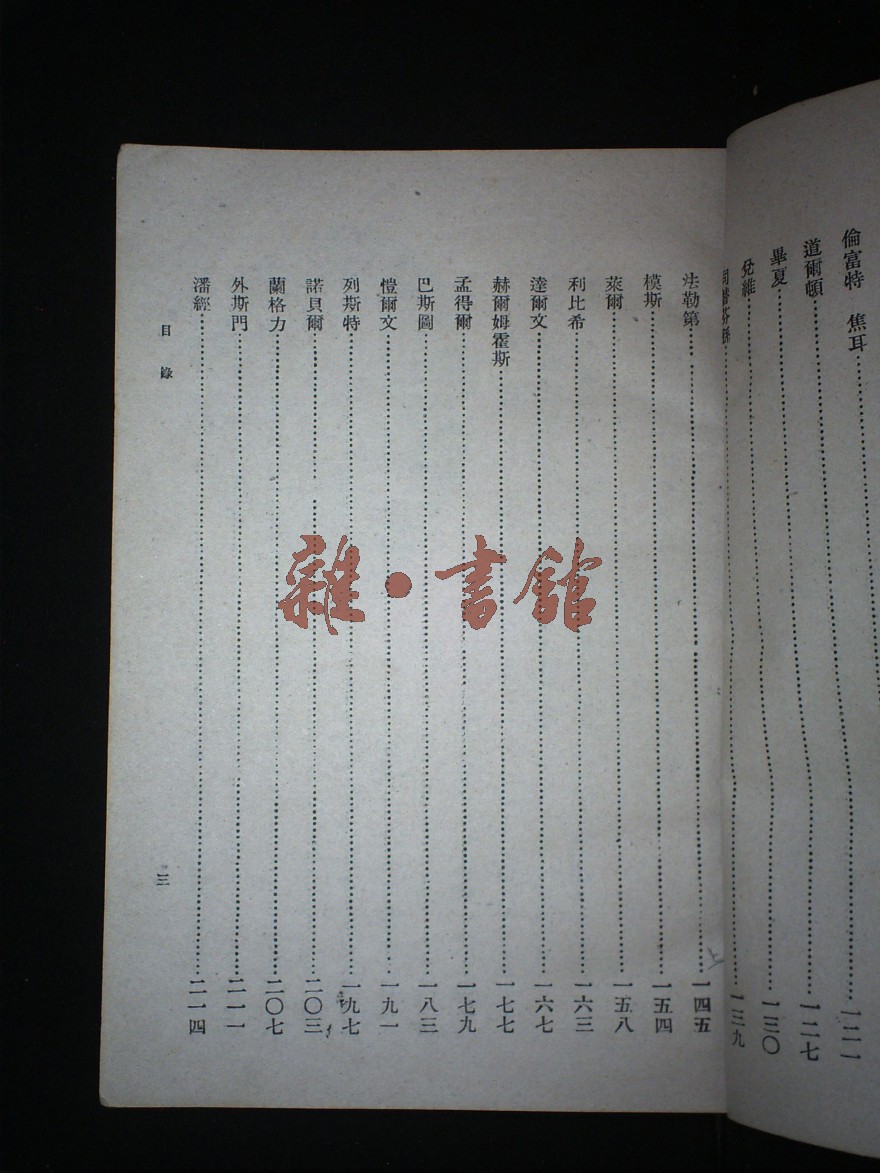 倫富特 焦耳……一二一
道爾頓……一二七
畢夏……一三〇
兌維……
司蒂芬孫……一三九
法勒第……一四五
模斯……一五四
萊爾……一五八
利比希……一六三
達爾文……一六七
赫爾姆霍斯……一七七
孟得爾……一七九
巴斯圖……一八三
愷爾文……一九一
列斯特……一九七
諾貝爾……二〇三
蘭格力……二〇七
外斯門……二一一
潘經……二一四
目錄
三
雜·書館